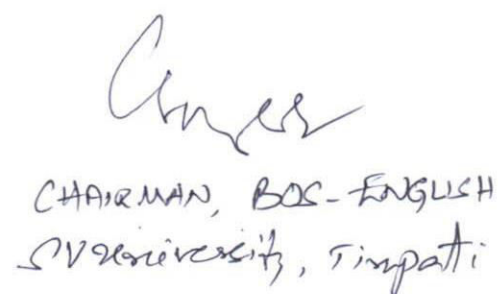 CHAIRMAN, BOS-ENGLISH
SV University, Tirupati